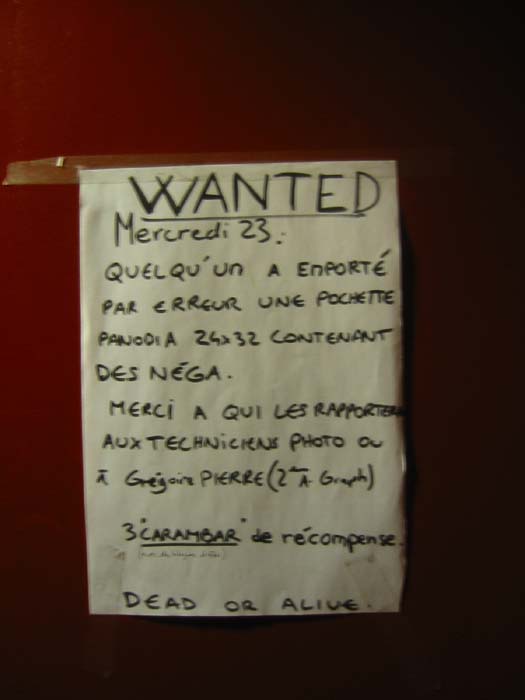 WANTED
Mercredi 23:
QUELQU'UN A EMPORTÉ
PAR ERREUR UNE POCHETTE
PANODIA 24x32 CONTENANT
DES NÉGA.
MERCI A QUI LES RAPPORTERA
AUX TECHNICIENS PHOTO OU
à Grégoire PIERRE (2 A Graph)
3 "CARAMBAR" de récompense.
DEAD OR ALIVE.